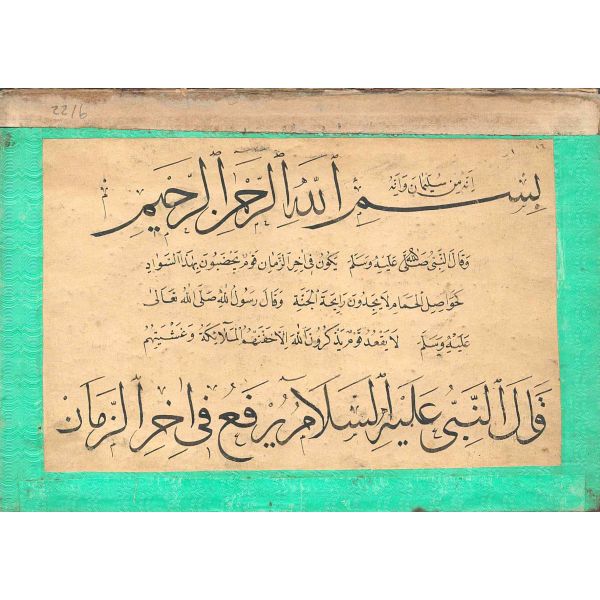 22/6
إنه من سليمان وإنه
بسم الله الرحمن الرحيم
وقال النبى صلى الله عليه وسلم يكون فى اخر الزمان قوم يخضبون بهذا السواد
كحواصل الحمام لا يجدون رايحة الجنة وقال رسول الله صلى الله تعالى
عليه وسلم لا يقعد قوم يذكرون الله الا حفتهم الملائكة وغشيتهم
قال النبى عليه السلام يرفع فى اخر الزمان